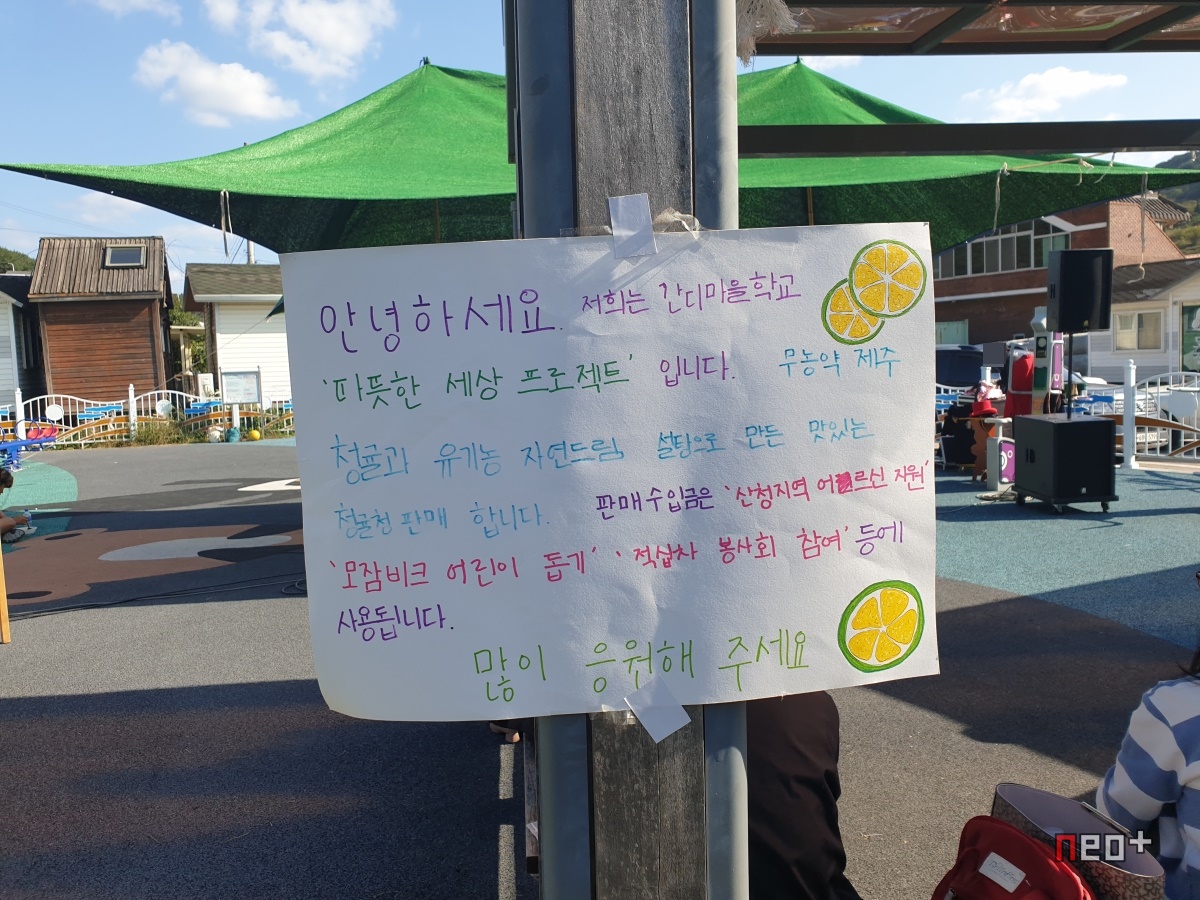 안녕하세요. 저희는 간디마을학교
'따뜻한 세상 프로젝트' 입니다. 무농약 제주
청귤과 유기농 자연드림 설탕으로 만든 맛있는
청귤청 판매 합니다. 판매수입금은 '산청지역 어르신 지원'
'모잠비크 어린이 돕기' '적십자 봉사회 참여' 등에
사용됩니다.
많이 응원해 주세요
neo+